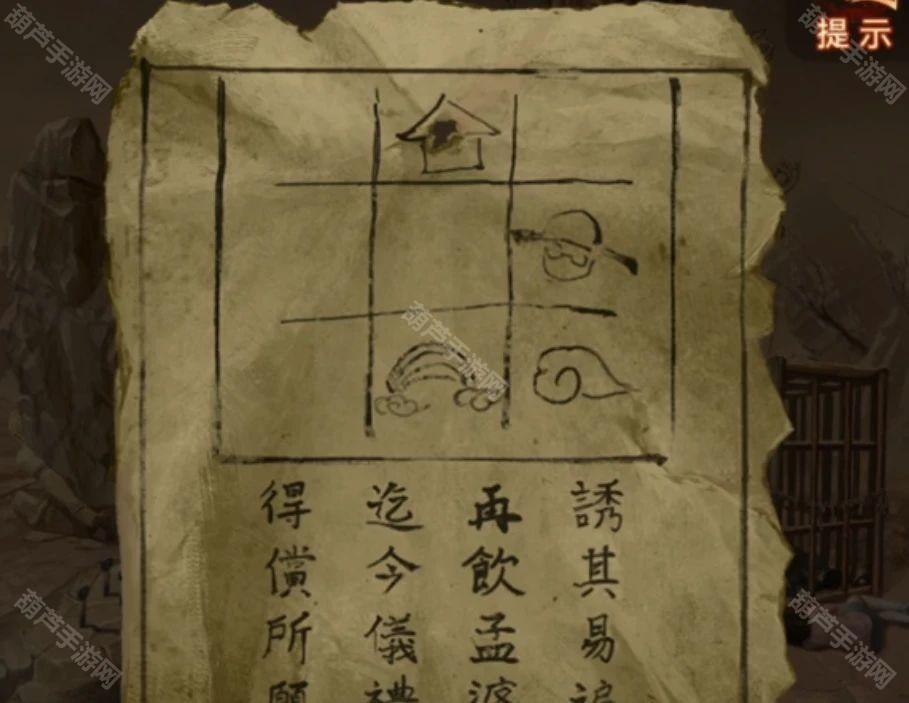 提示
誘其易
再飲孟婆
迄今儀禮
得償所願
葫芦手游网
葫芦手游网
葫芦手游网
葫芦手游网
葫芦手游网